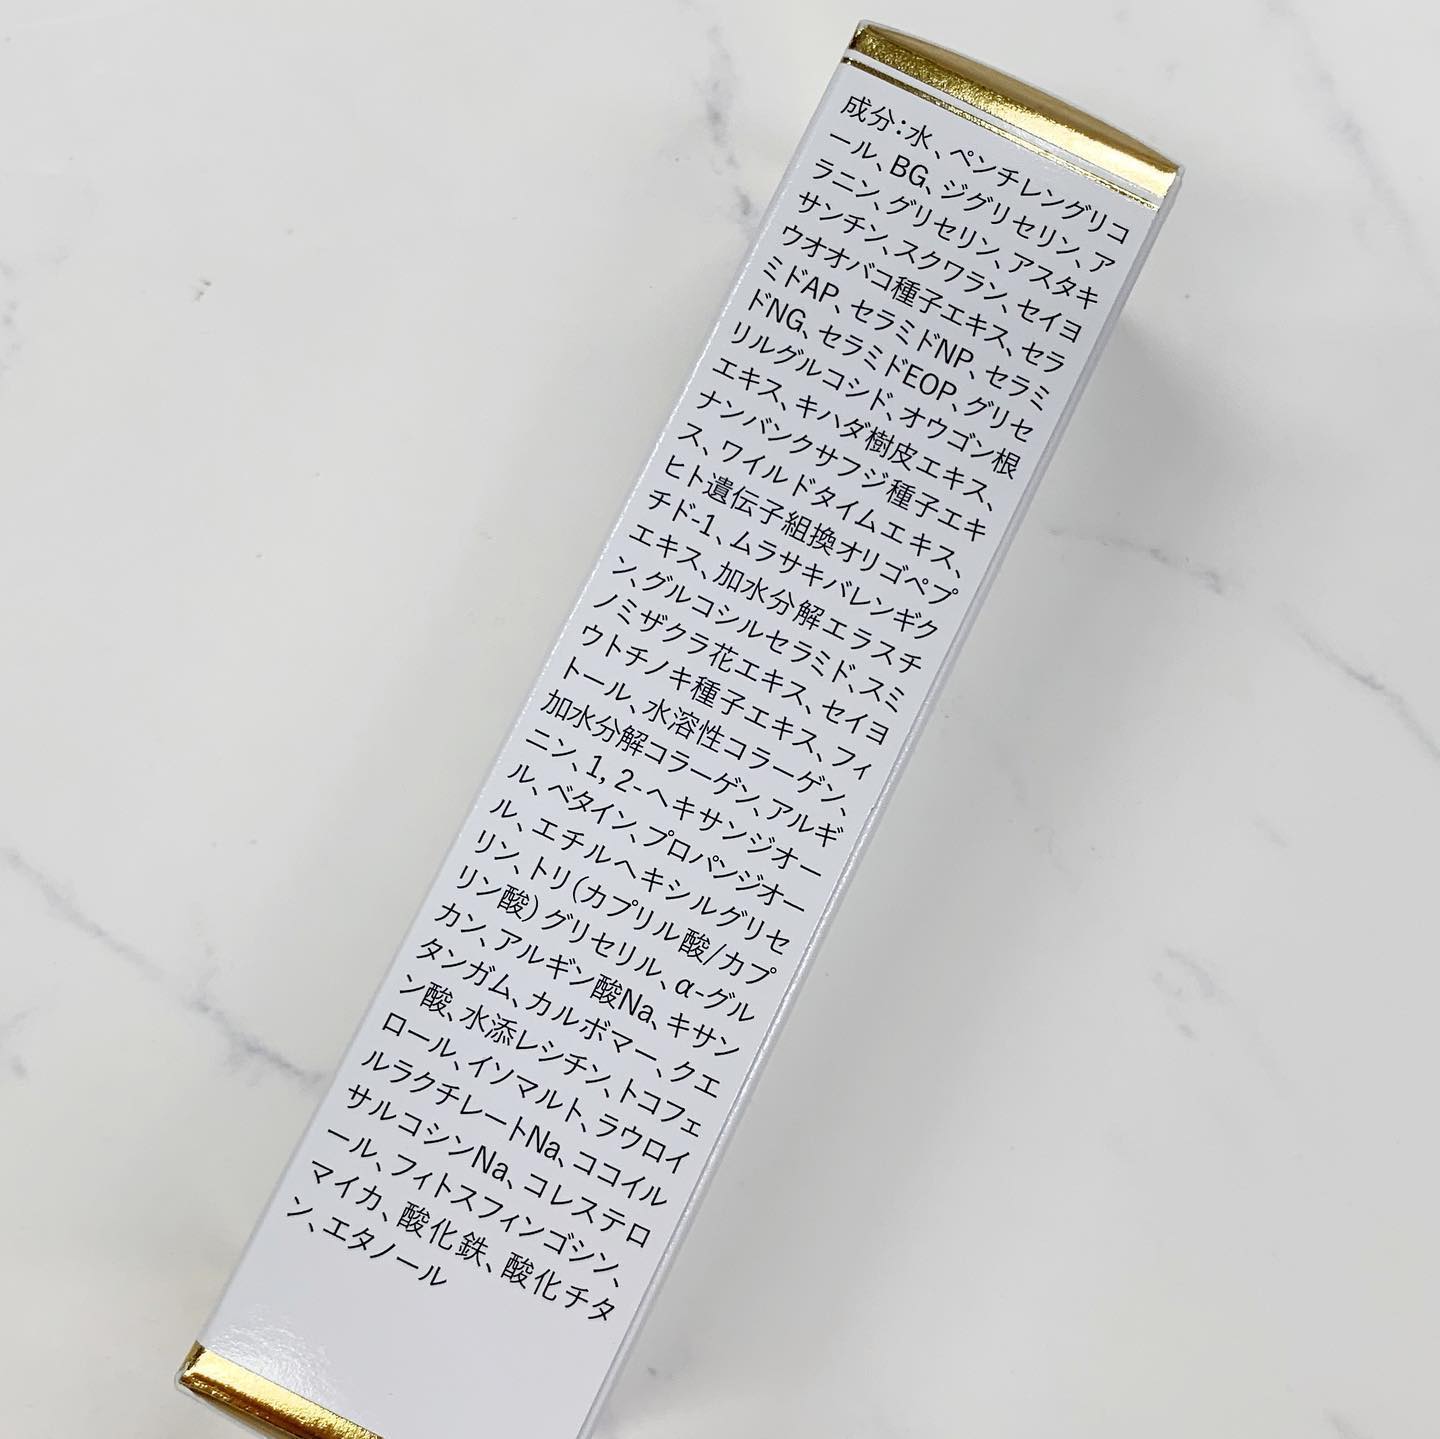 成分：水、ペンチレングリコ
ール、BG、ジグリセリン、ア
ラニン、グリセリン、アスタキ
サンチン、スクワラン、セイヨ
ウオオバコ種子エキス、セラ
ミドAP、セラミドNP、セラミ
ドNG、セラミドEOP、グリセ
リルグルコシド、オウゴン根
エキス、キハダ樹皮エキス、
ナンバンクサフジ種子エキ
ス、ワイルドタイムエキス、
ヒト遺伝子組換オリゴペプ
チド-1、ムラサキバレンギク
エキス、加水分解エラスチ
ン、グルコシルセラミド、スミ
ノミザクラ花エキス、セイヨ
ウトチノキ種子エキス、フィ
トール、水溶性コラーゲン、
加水分解コラーゲン、アルギ
ニン、1，2-ヘキサンジオー
ル、ベタイン、プロパンジオー
ル、エチルヘキシルグリセ
リン、トリ（カプリル酸/カプ
リン酸）グリセリル、α-グル
カン、アルギン酸Na、キサン
タンガム、カルボマー、クエ
ン酸、水添レシチン、トコフェ
ロール、イソマルト、ラウロイ
ルラクチレートNa、ココイル
サルコシンNa、コレステロ
ール、フィトスフィンゴシン、
マイカ、酸化鉄、酸化チタ
ン、エタノール